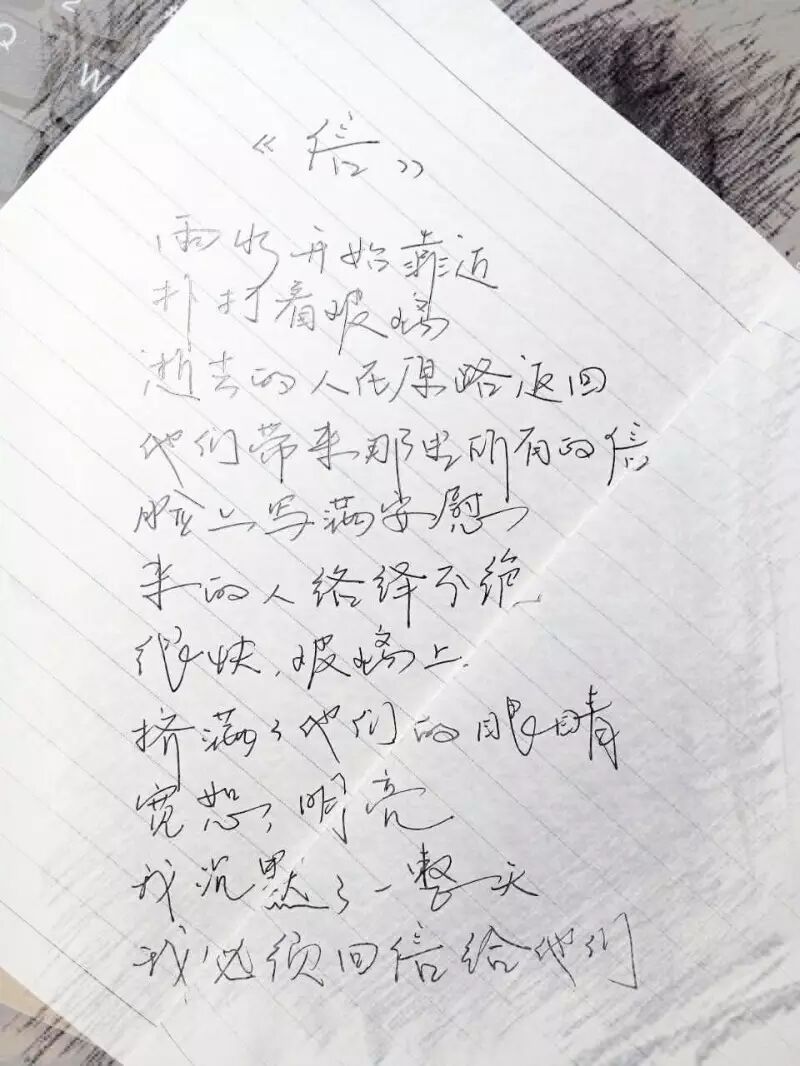 《信》
雨水开始靠近
扑打着玻璃
逝去的人在原路返回
他们带来那里所有的信
脸上写满安慰
来的人络绎不绝
很快,玻璃上.
挤满了他们的眼睛
宽恕,明亮
我沉默了一整天
我必须回信给他们
Q
W